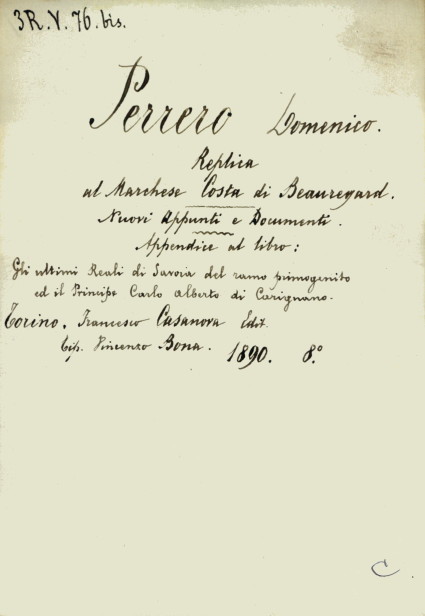 3R.V.76.bis.
Perrero Domenico.
Replica
al Marchese Costa di Beauregard.
Nuovi Appunti e Documenti.
Appendice al libro:
Gli ultimi Reali di Savoia del ramo primogenito
ed il Principe Carlo Alberto di Carignano.
Torino. Francesco Casanova Edit.
Tip. Vincenzo Bona. 1890. 8.°
C